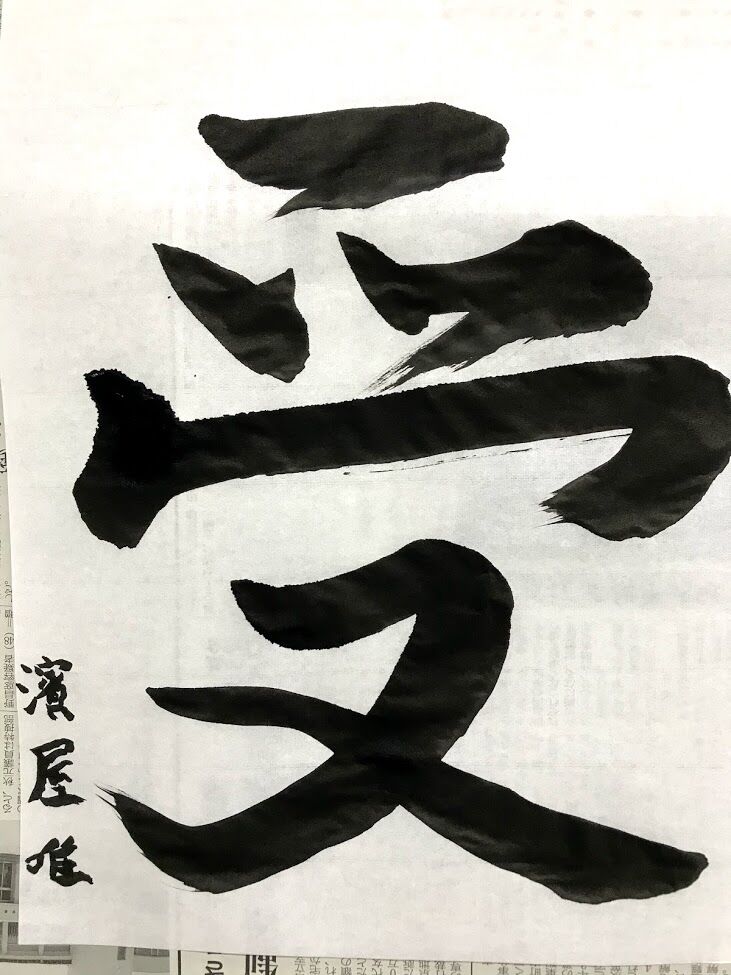 受
濱屋唯